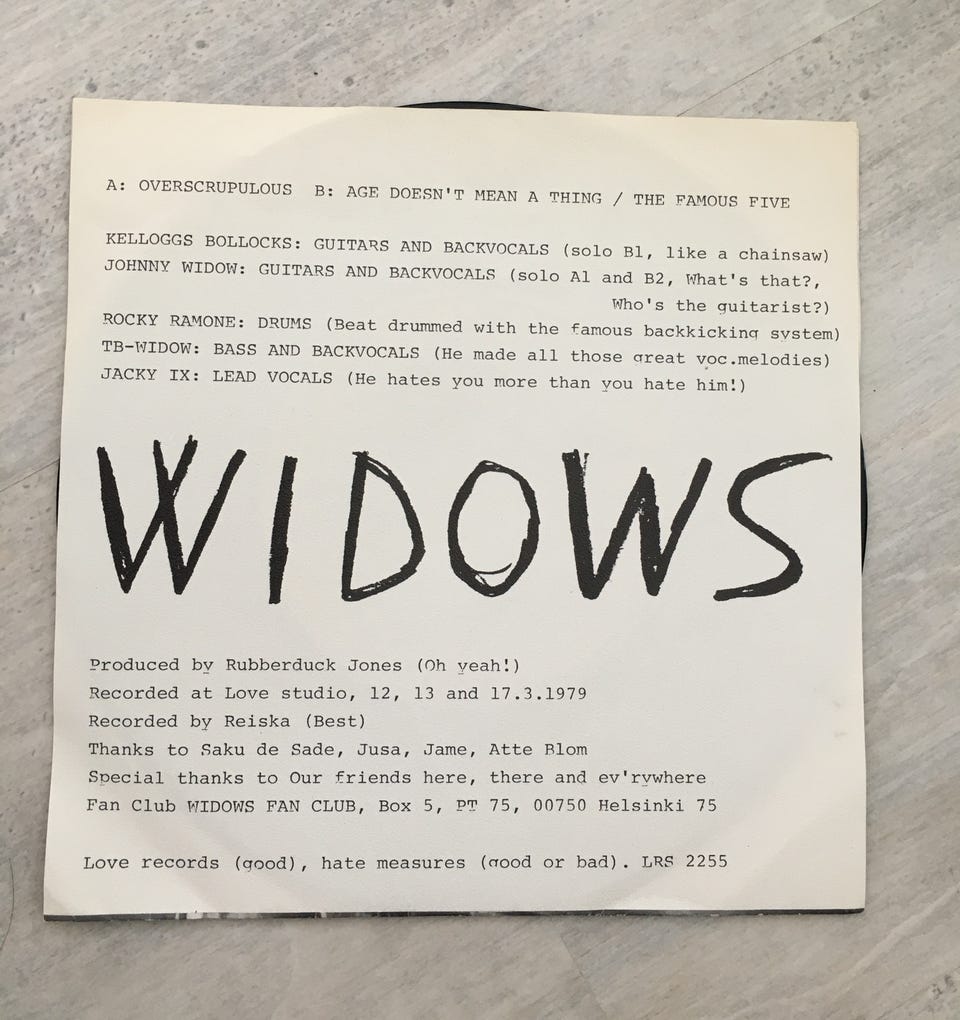 A: OVERSCRUPULOUS B: AGE DOESN'T MEAN A THING / THE FAMOUS FIVE
KELLOGGS BOLLOCKS: GUITARS AND BACKVOCALS (solo B1, like a chainsaw)
JOHNNY WIDOW: GUITARS AND BACKVOCALS (solo A1 and B2, What's that?,
Who's the guitarist?)
ROCKY RAMONE: DRUMS (Beat drummed with the famous backkicking system)
TB-WIDOW: BASS AND BACKVOCALS (He made all those great voc.melodies)
JACKY IX: LEAD VOCALS (He hates you more than you hate him!)
WIDOWS
Produced by Rubberduck Jones (Oh yeah!)
Recorded at Love studio, 12, 13 and 17.3.1979
Recorded by Reiska (Best)
Thanks to Saku de Sade, Jusa, Jame, Atte Blom
Special thanks to Our friends here, there and ev'rywhere
Fan Club WIDOWS FAN CLUB, Box 5, PT 75, 00750 Helsinki 75
Love records (good), hate measures (good or bad). LRS 2255